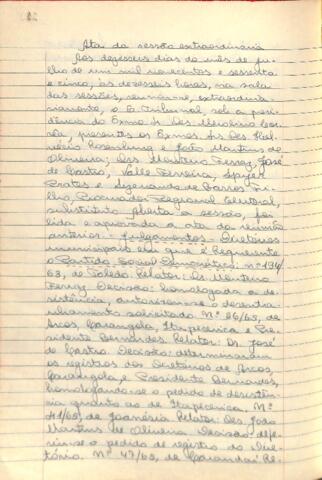 Ata da sessão extraordinária
Aos dezesseis dias do mês de ju-
lho de um mil novecentos e sessenta
e cinco, às dezesseis horas, na sala
das sessões, reuniu-se, extraordina-
riamente, o E. Tribunal, sob a presi-
dência do Exmo. Sr. Des.
presentes os Exmos. Srs. Des. Hel-
vécio Rosenburg e João Martins de
Oliveira; Drs. Monteiro Ferraz, José
de Castro, Valle Ferreira, Spyer
Prates e de Barros Fi-
lho, Procurador Regional Eleitoral,
substituto. Aberta a sessão, foi
lida e aprovada a ata da reunião
anterior. Julgamentos - Diretórios
municipais em que é Requerente
o Partido Social Democrático: nº 194/
63, de Toledo. Relator: Dr. Monteiro
Ferraz. Decisão: homologada a de-
sistência, autorizou-se o desentra-
nhamento solicitado. Nº 26/63, de
Arcos, Carangola, Itapecerica e Pre-
sidente Bernardes. Relator: Dr. José
de Castro. Decisão: determinaram
os registros dos Diretórios de Arcos,
Carangola e Presidente Bernardes,
homologando-se o pedido de desistên-
cia quanto ao de Itapecerica. Nº
41/63, de Joanésia. Relator: Des. João
Martins de Oliveira. Decisão: defe-
riu-se o pedido de registro do Dire-
tório. Nº 47/63, de Carandaí. Re-